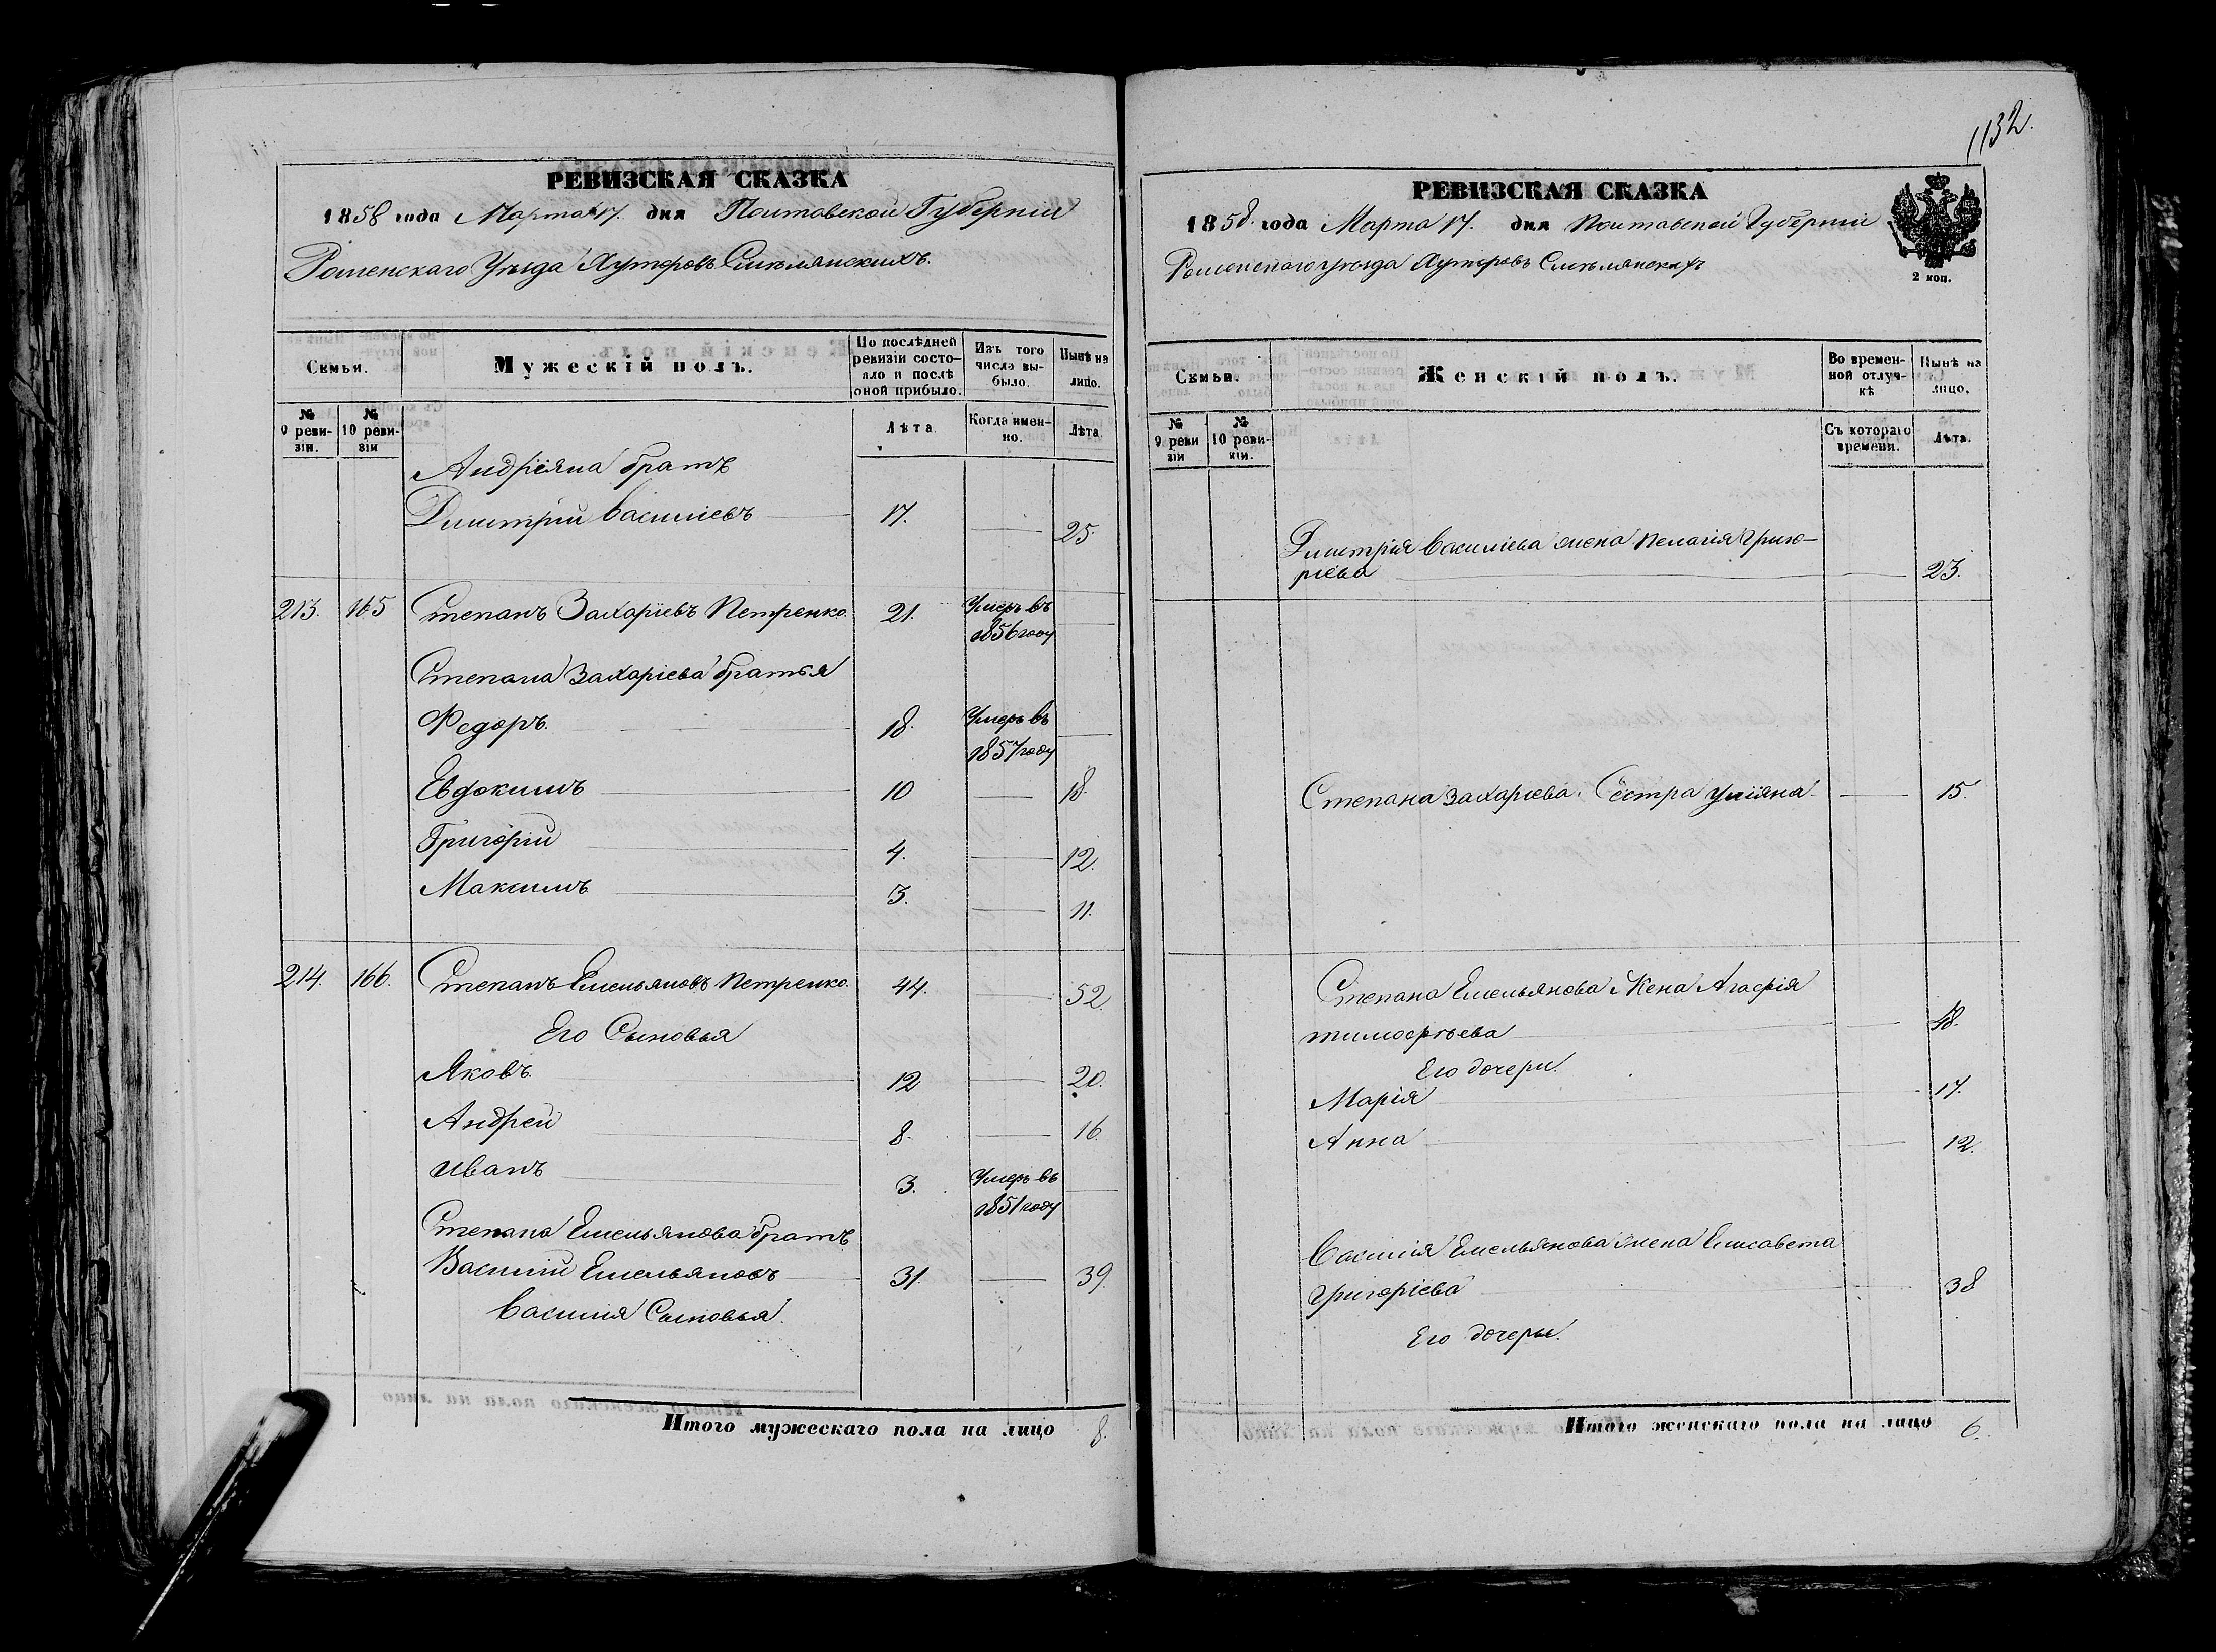 РЕВИЗСКАЯ СКАЗКА
1858 года Марта 17. дня Полтавской Губерніи
Роменскаго Уѣзда Хуторовъ Смѣлянскихъ.
Семьи.
Мужескій полъ.
По послѣдней ревизіи состояло и послѣ оной прибыло.
Изъ того числа выбыло.
Нынѣ на лицо.
№ 9 ревизіи.
№ 10 ревизіи
Лѣта
Когда именно.
Лѣта
Андріяна братъ
Димитрій Василіевъ 17. 25.
213. 165 Степанъ Захаріевъ Петренко. 21. Умеръ въ 1856 году
Степана Захаріева братья
Федоръ. 18. Умеръ въ 1857 году
Евдокимъ 10 18.
Григорій 4. 12.
Максимъ 3. 11.
214. 166. Степанъ Емельяновъ Петренко. 44. 52.
Его Сыновья
Яковъ. 12 20.
Андрей 8. 16.
Иванъ 3. Умеръ въ 1851 году
Степана Емельянова братъ
Василій Емельяновъ 31. 39.
Василія Сыновья.
Итого мужескаго пола на лицо 8.
1132.
РЕВИЗСКАЯ СКАЗКА
1858. года Марта 17. дня Полтавской Губерніи
Роменскаго уѣзда Хуторовъ Смѣлянскихъ
2 коп.
Семьи.
Женскій полъ.
Во временной отлучкѣ
Нынѣ на лицо.
№ 9 ревизіи
№ 10 ревизіи.
Съ котораго времени.
Лѣта.
Димитрія Василіева жена Пелагія Григо-
ріева 23.
Степана Захаріева Сестра Уліяна 15.
Степана Емельянова Жена Агафія
Тимофѣева 48.
Его дочери.
Марія 17.
Анна 12.
Василія Емельянова жена Елисавета
Григоріева 38
Его дочери.
Итого женскаго пола на лицо 6.